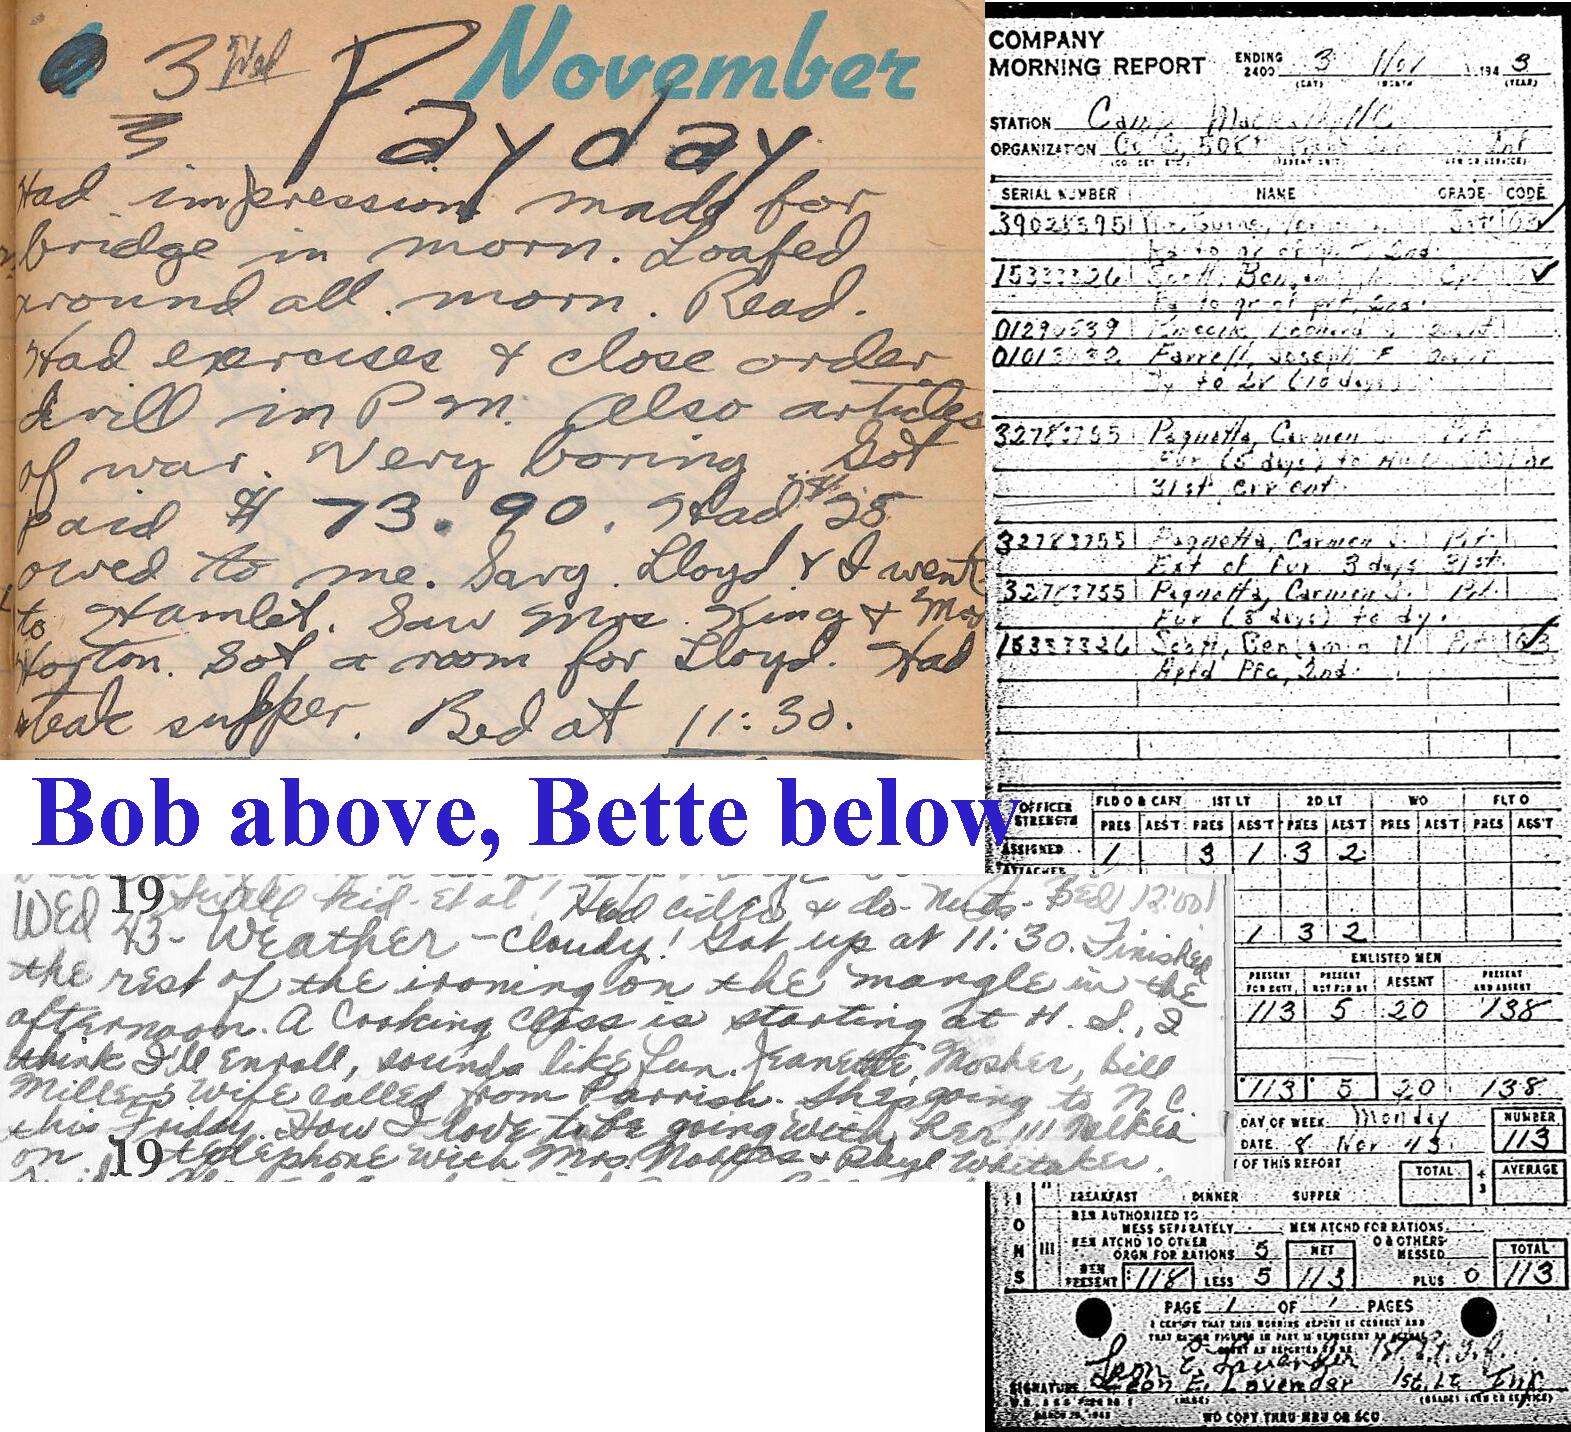 November
3 Wed
Payday
Had impression made for
bridge in morn. Loafed
around all morn. Read.
Had exercises & close order
drill in P m. Also articles
of war. Very boring. Got
paid $ 73.90. Had $25
owed to me. Sarg. Lloyd & I went
to Hamlet. Saw Mrs. King &
Horton. Got a room for Lloyd. Had
steak supper. Bed at 11:30.
Bob above, Bette below
Had cider & do-nuts - Bed 12:00
WED 1943 - Weather - Cloudy! Got up at 11:30. Finished
the rest of the ironing on the mangle in the
afternoon. A Cooking Class is starting at H. S., I
think I'll enroll, sounds like fun. Jeanette, Mosher, Bill
Miller's wife called from Parrish. She's going to N.C.
this Friday. How I love to be going with her!!! Talked
on telephone with Mrs. & Whitaker.
19
COMPANY
MORNING REPORT ENDING 2400 3 Nov 1943
(DAY) (MONTH) (YEAR)
STATION Camp Mackall NC
ORGANIZATION Co C, 508 Inf
SERIAL NUMBER NAME GRADE CODE
Sgt
15333326 Scott, Cpl
Farrell, Joseph F
Dy to Lv (10 days)
32783755 Paquette, Carmen Pvt
Fur (5 days) to
31st
32783755 Paquette, Carmen J. Pvt
Ext of Fur 3 days 31st
32783755 Paquette, Carmen J. Pvt
Fur (8 days) to dy.
Scott, Benjamin Pvt
Aptd Pfc, 2nd.
OFFICER STRENGTH FLD O & CAPT 1ST LT 2D LT WO FLT O
PRES ABS'T PRES ABS'T PRES ABS'T PRES ABS'T PRES ABS'T
ASSIGNED 1 3 1 3 2
ATTACHED
1 3 2
ENLISTED MEN
PRESENT FOR DUTY PRESENT NOT FOR DY ABSENT PRESENT AND ABSENT
113 5 20 138
113 5 20 138
DAY OF WEEK Monday NUMBER
DATE 8 Nov 43 113
OF THIS REPORT TOTAL ÷ 3 AVERAGE
BREAKFAST DINNER SUPPER
MEN AUTHORIZED TO
MESS SEPARATELY MEN ATCHD FOR RATIONS
III MEN ATCHD TO OTHER ORGN FOR RATIONS 5 NET & OTHERS MESSED TOTAL
MEN PRESENT 118 LESS 5 113 PLUS 0 113
PAGE 1 OF 1 PAGES
I CERTIFY THAT THIS MORNING REPORT IS CORRECT AND
Leon E. Lavender 1st Lt Inf
SIGNATURE Leon E. Lavender 1st. Lt. Inf
(NAME) (GRADE) (ARM OR SERVICE)